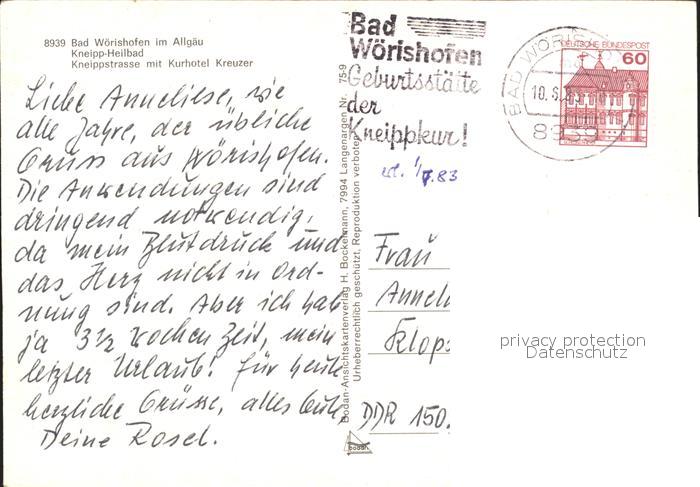 8939 Bad Wörishofen im Allgäu
Kneipp-Heilbad
Kneippstrasse mit Kurhotel Kreuzer
Liebe Anneliese, wie
alle Jahre, der übliche
Gruss aus Wörishofen.
Die Anwendungen sind
dringend notwendig,
da mein Blutdruck und
das Herz nicht in Ord-
nung sind. Aber ich hab
ja 3½ Wochen Zeit, mein
letzter Urlaub! Für heute
herzliche Grüsse, alles Gute,
Deine Rosel.
Bodan-Ansichtskartenverlag H. Bockelmann, 7994 Langenargen Nr. 75-9
Urheberrechtlich geschützt, Reproduktion verboten
BODAN
Bad
Wörishofen
Geburtsstätte
der
Kneippkur!
BAD WÖRISHOFEN
10.6.83
8939
DEUTSCHE BUNDESPOST
60
83
Frau
Anneli
Klops
DDR 150.
privacy protection
Datenschutz